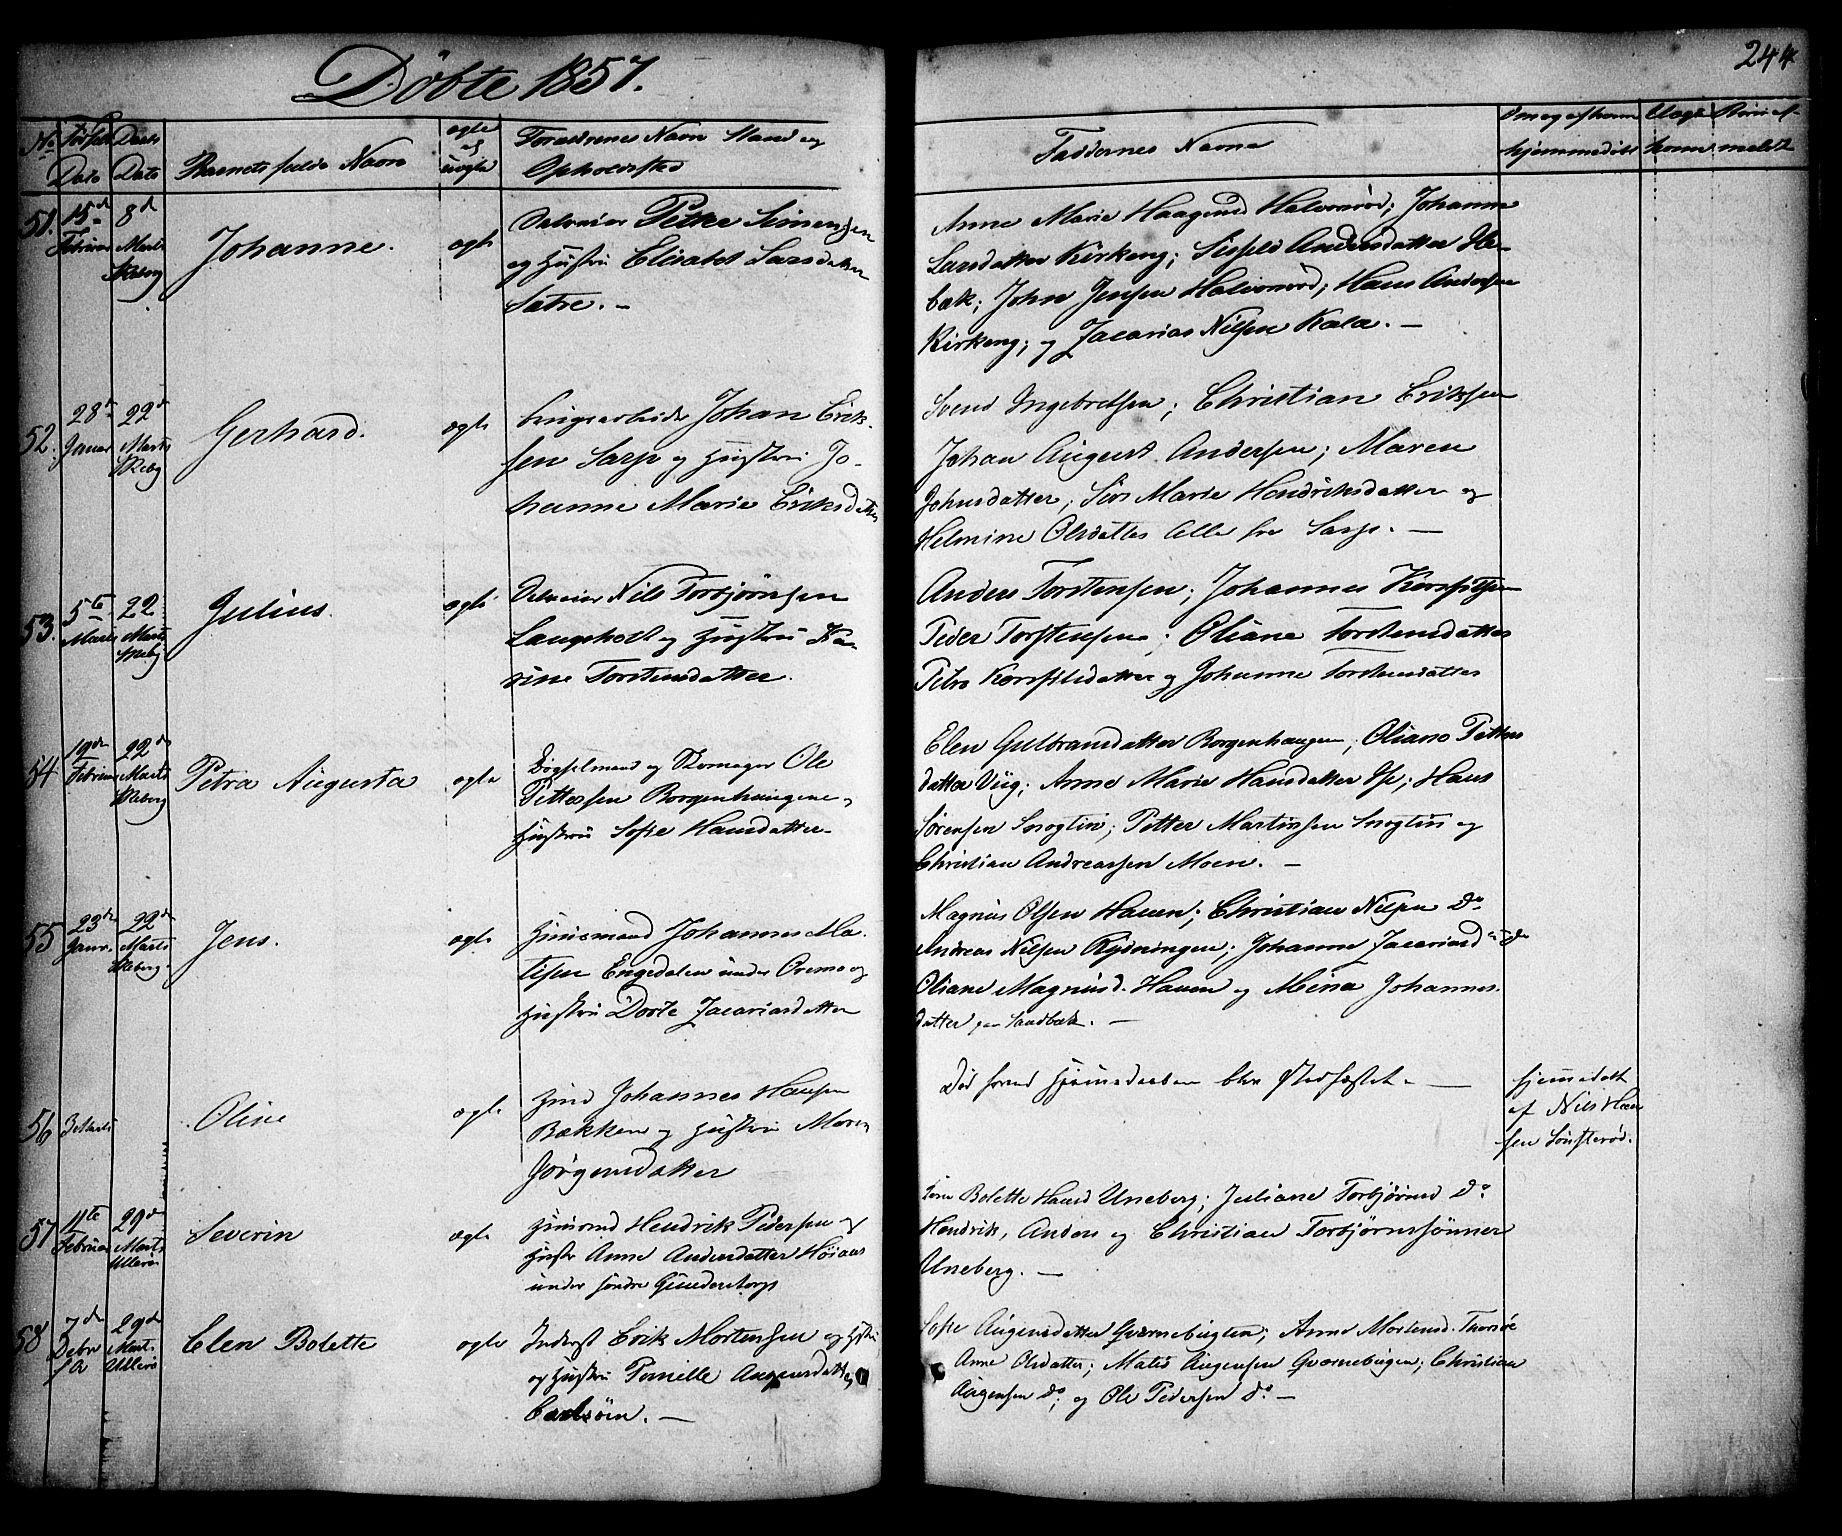 Døbte 1857.
244
No Fødsels Date
Daabs Date
Barnets fulde Navn
ægte og uægte
Forældrenes Navn Stand og
Opholdsted
Faddernes Navne
Om og af hvem
hjemmedøbt
51. 15d Februar
8d Marts Skeberg
Johanne.
ægte
Selveier Petter Simensen
og Hustru Elisabet Larsdatter
Sætre. —
Anne Marie Haagensd Halvorsrød; Johanne
Larsdatter Kirkeng; Sissel Andersdatter He-
bæk; John Jensen Halvorsrød; Hans Andersen
Kirkeng; og Zacarias Nilsen Kala. —
52. 28d Januar
22d Marts Skebg
Gerhard.
ægte
brugsarbeider Johan Erik-
sen Sarp og Hustru Jo-
hanne Marie Eriksdatter
Svend Ingebretsen; Christian Eriksen
Johan August Andersen; Maren
Johnsdatter; Siri Marie Hendriksdatter og
Helmine Olsdatter Alle fra Sarp. —
53. 5te Marts
22 Marts Skebg
Julius.
ægte
Selveier Nils Torbjørnsen
Langeholt og Hustru Ka-
rine Torstensdatter.
Anders Torstensen; Johannes Kersfitsen
Peder Torstensen; Oliane Torstensdatter
Petra Kersfitsdatter og Johanne Torstensdatter
54 19de Februar
22d Marts Skeberg
Petra Augusta
ægte
Bøgselmand og Skomager Ole
Pettersen Borgenhaugen og
Hustru Sofie Hansdatter
Elen Gulbrandsdatter Borgenhaugen; Oliane Petters
datter Viig; Anne Marie Hansdatter Is; Hans
Sørensen Smogtin; Petter Martinsen Smogtin og
Christian Andreassen Moen. —
55 23de Janr.
22de Marts Skeberg
Jens.
ægte
Huusmand Johannes Ma-
tisen Engedalen under Oremo og
Hustru Dorte Zacariasdatter
Magnus Olsen Hauen; Christian Nilsen Do
Andreas Nilsen Rydningen; Johanne Zacariasd Do
Oliane Magnusd. Hauen og Mina Johannes
datter paa Sandbæk. —
56 3 Marts
Oline
ægte
Huusd Johannes Hansen
Bækken og Hustru Maren
Jørgensdatter
Død forend Hjemedaaben blev stadfæstet. —
hjemedøbt
af Nils Han
sen Sønsterød.
57 11te Februar
29d Marts Ullerø
Severin
ægte
Huusmd Hendrik Pedersen og
Hustr Anne Andersdatter Høiaas
under søndre Gunderstorp
Bolette Hansd Uneberg; Juliane Torbjørnsd Do
Hendrik, Anders og Christian Torbjørnssønner
Uneberg. —
58 7de Febr
29d Mart. Ullerø
Elen Bolette
ægte
Inderst Erik Mortensen og Hustru
og Hustru Pernille Augensdatter
Carlsøen. —
Sofie Augensdatter Qværnebugten; Anne Mortensd. Thorsøe
Anne Olsdatter; Matis Augensen Qværnebugen; Christian
Augensen Do; og Ole Pedersen Do —